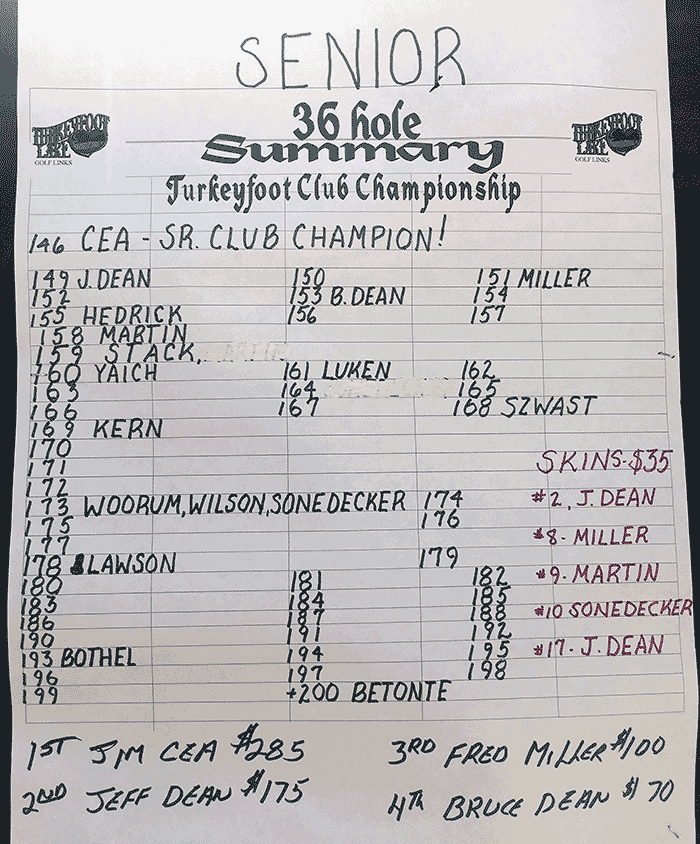 SENIOR
36 hole
Summary
TURKEYFOOT LAKE GOLF LINKS
TURKEYFOOT LAKE GOLF LINKS
Turkeyfoot Club Championship
146 CEA - SR. CLUB CHAMPION!
149 J. DEAN 150 151 MILLER
152 153 B. DEAN 154
155 HEDRICK 156 157
158 MARTIN
159 STACK,
160 YAICH 161 LUKEN 162
163 164 165
166 167 168 SZWAST
169 KERN
170
171
172
SKINS-$35
173 WOORUM, WILSON, SONEDECKER 174
#2, J. DEAN
175 176
177
#8- MILLER
178 LAWSON 179
180 181 182
#9- MARTIN
183 184 185
186 187 188
#10 SONEDECKER
190 191 192
193 BOTHEL 194 195
#17- J. DEAN
196 197 198
199 +200 BETONTE
1ST JIM CEA $285
3RD FRED MILLER $100
2ND JEFF DEAN $175
4TH BRUCE DEAN $70